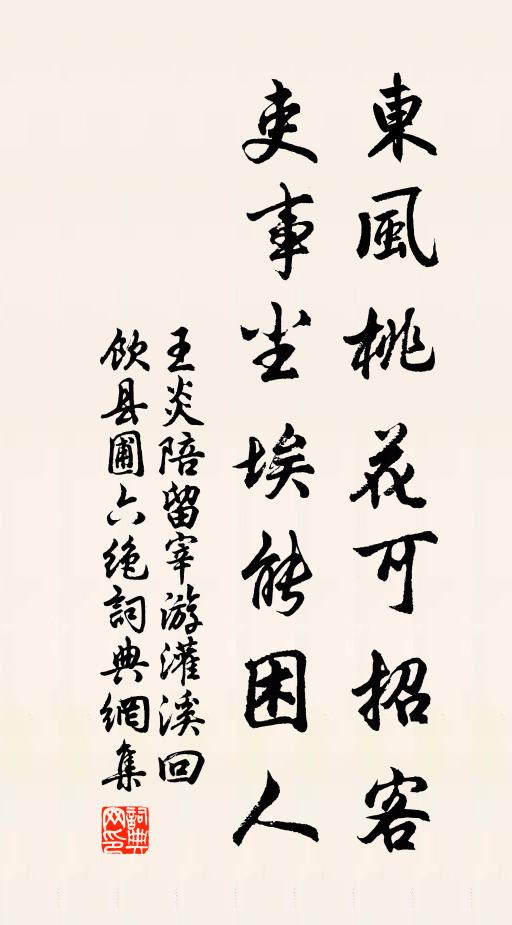 東風桃花可招客
吏事尘埃能困人
王炎陪留宰游灌溪回
飲县圃六绝詞典網集
詞典網印